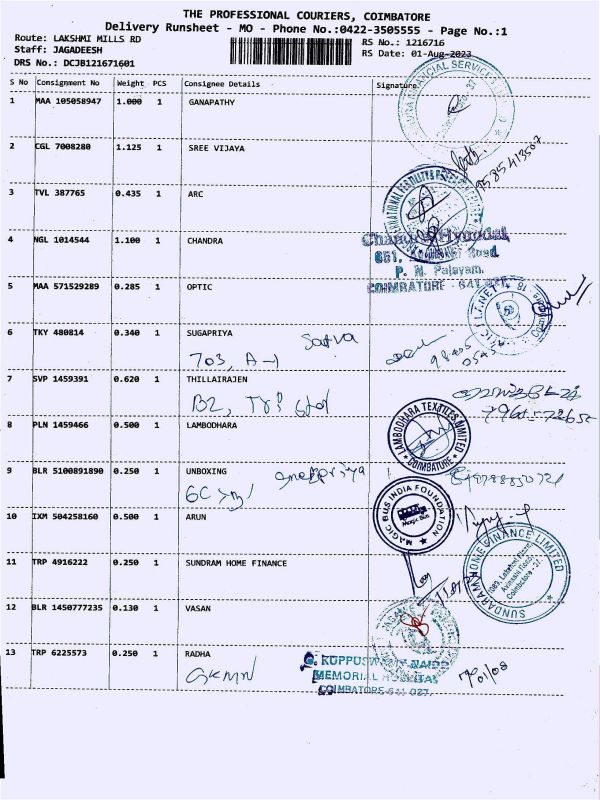 THE PROFESSIONAL COURIERS, COIMBATORE
Delivery Runsheet - MO - Phone No.:0422-3505555 - Page No.:1
Route: LAKSHMI MILLS RD
Staff: JAGADEESH
DRS No.: DCJB121671601
RS No.: 1216716
RS Date: 01-Aug-2023
S No Consignment No Weight PCS Consignee Details Signature
1 MAA 105058947 1.000 1 GANAPATHY
2 CGL 7008280 1.125 1 SREE VIJAYA
9585413507
3 TVL 387765 0.435 1 ARC
4 NGL 1014544 1.100 1 CHANDRA
Chandra Hyundai
P. N. Palayam.
COIMBATORE - 641 037
5 MAA 571529289 0.285 1 OPTIC
6 TKY 480814 0.340 1 SUGAPRIYA
703, A-1
7 SVP 1459391 0.620 1 THILLAIRAJEN
B2,
8 PLN 1459466 0.500 1 LAMBODHARA
LAMBODHARA TEXTILES LIMITED
COIMBATORE
9 BLR 5100891890 0.250 1 UNBOXING
MAGIC BUS INDIA FOUNDATION
Magic Bus
10 IXM 504258160 0.500 1 ARUN
11 TRP 4916222 0.250 1 SUNDRAM HOME FINANCE
SUNDARAM HOME FINANCE LIMITED
1089, Lakshmi Floor,
Avinashi Road,
Coimbatore - 37.
12 BLR 1450777235 0.130 1 VASAN
13 TRP 6225573 0.250 1 RADHA
GKMN
G. KUPPUSWAMY NAIDU
MEMORIAL HOSPITAL
COIMBATORE-641 037.
01/08